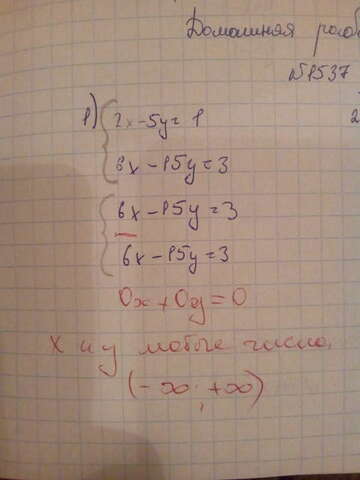 Домашняя рабо
№1537
1) 2x-5y=1
2
6x-15y=3
6x-15y=3
6x-15y=3
0x+0y=0
x и y любые числа,
(-∞; +∞)